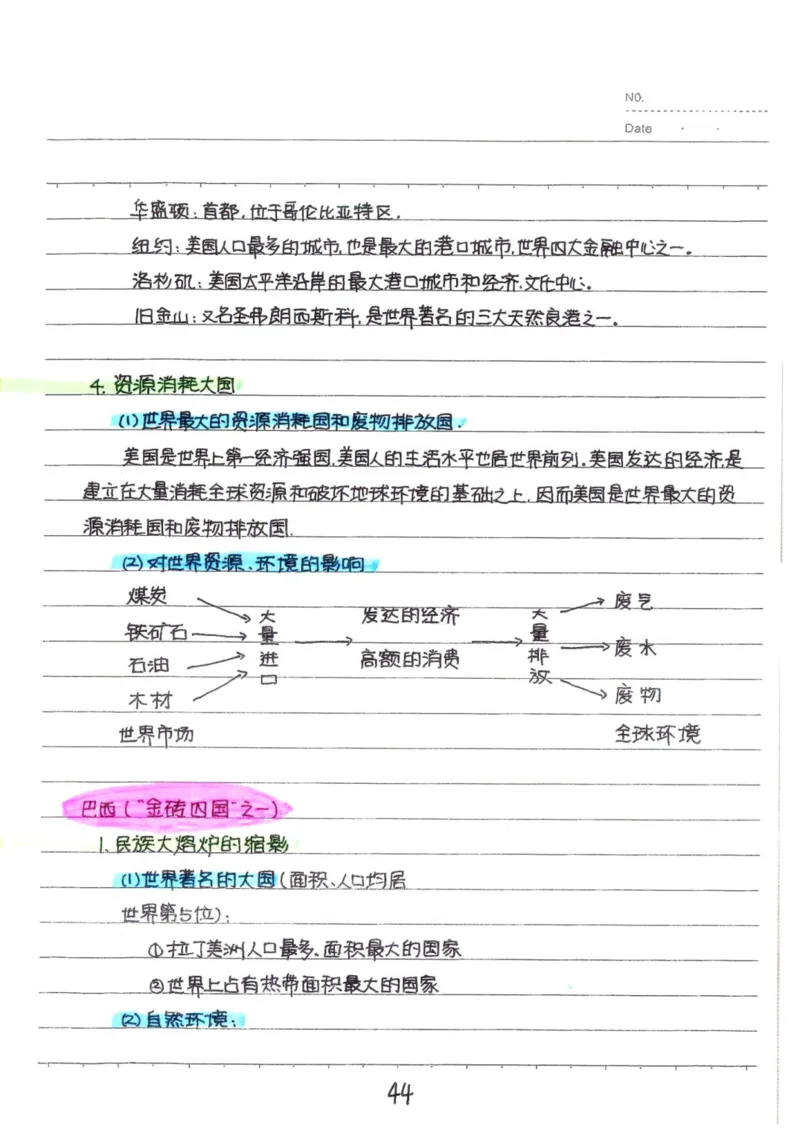 NO.
Date
华盛顿：首都，位于哥伦比亚特区．
纽约：美国人口最多的城市，也是最大的港口城市，世界四大金融中心之一。
洛杉矶：美国太平洋沿岸的最大港口城市和经济、文化中心。
旧金山：又名圣弗朗西斯科，是世界著名的三大天然良港之一。
4. 资源消耗大国
(1)世界最大的资源消耗国和废物排放国．
美国是世界上第一经济强国，美国人的生活水平也居世界前列。美国发达的经济，是
建立在大量消耗全球资源和破坏地球环境的基础之上，因而美国是世界最大的资
源消耗国和废物排放国．
(2)对世界资源、环境的影响
煤炭
铁矿石
石油
木材
世界市场
大量进口
发达的经济
高额的消费
大量排放
废气
废水
废物
全球环境
巴西（“金砖四国”之一）
1.民族大熔炉的缩影
(1)世界著名的大国（面积、人口均居
世界第5位）：
①拉丁美洲人口最多、面积最大的国家
②世界上占有热带面积最大的国家
(2)自然环境：
44